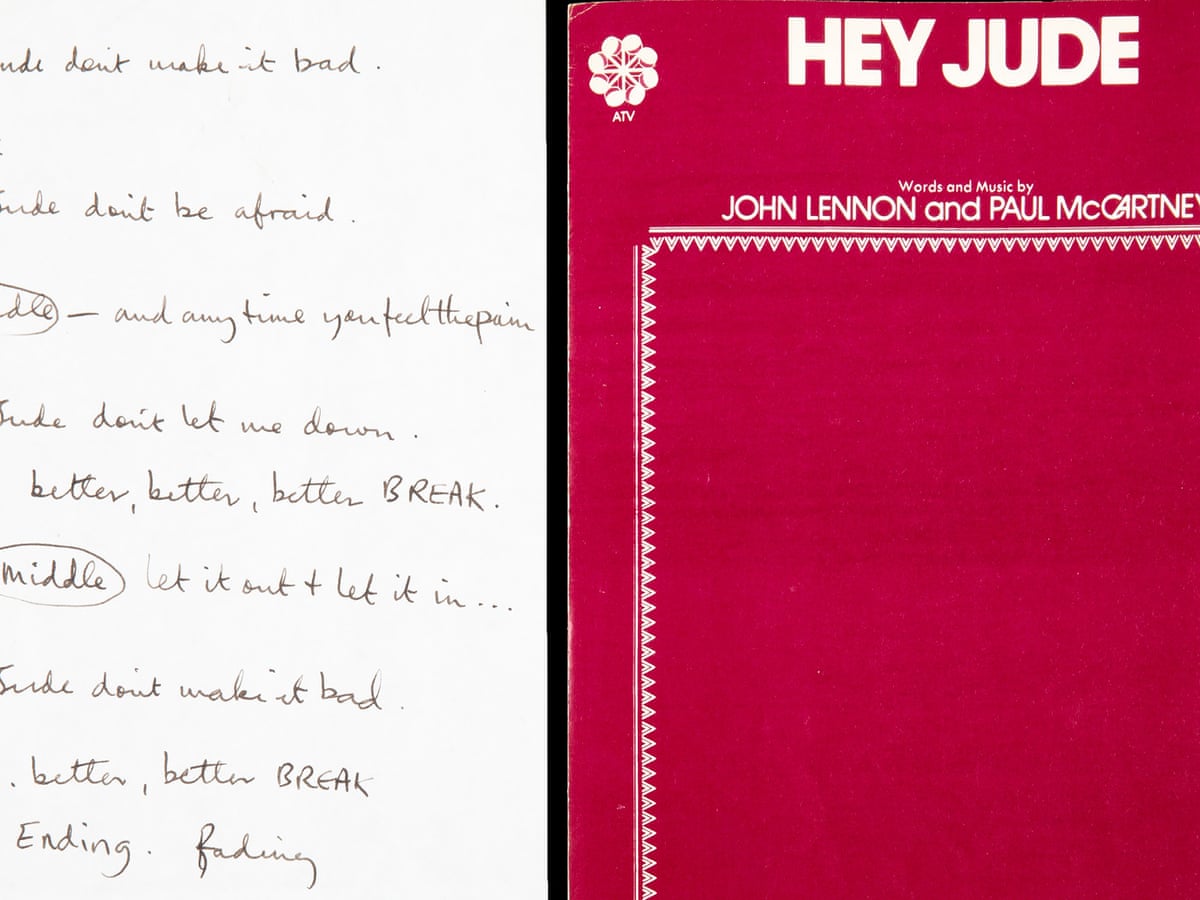 don't make it bad.
Jude don't be afraid.
— and anytime you feel the pain
Jude don't let me down.
better, better, better BREAK.
middle let it out + let it in...
Jude don't make it bad.
. better, better BREAK
Ending. fading
HEY JUDE
ATV
Words and Music by
JOHN LENNON and PAUL McCARTNEY